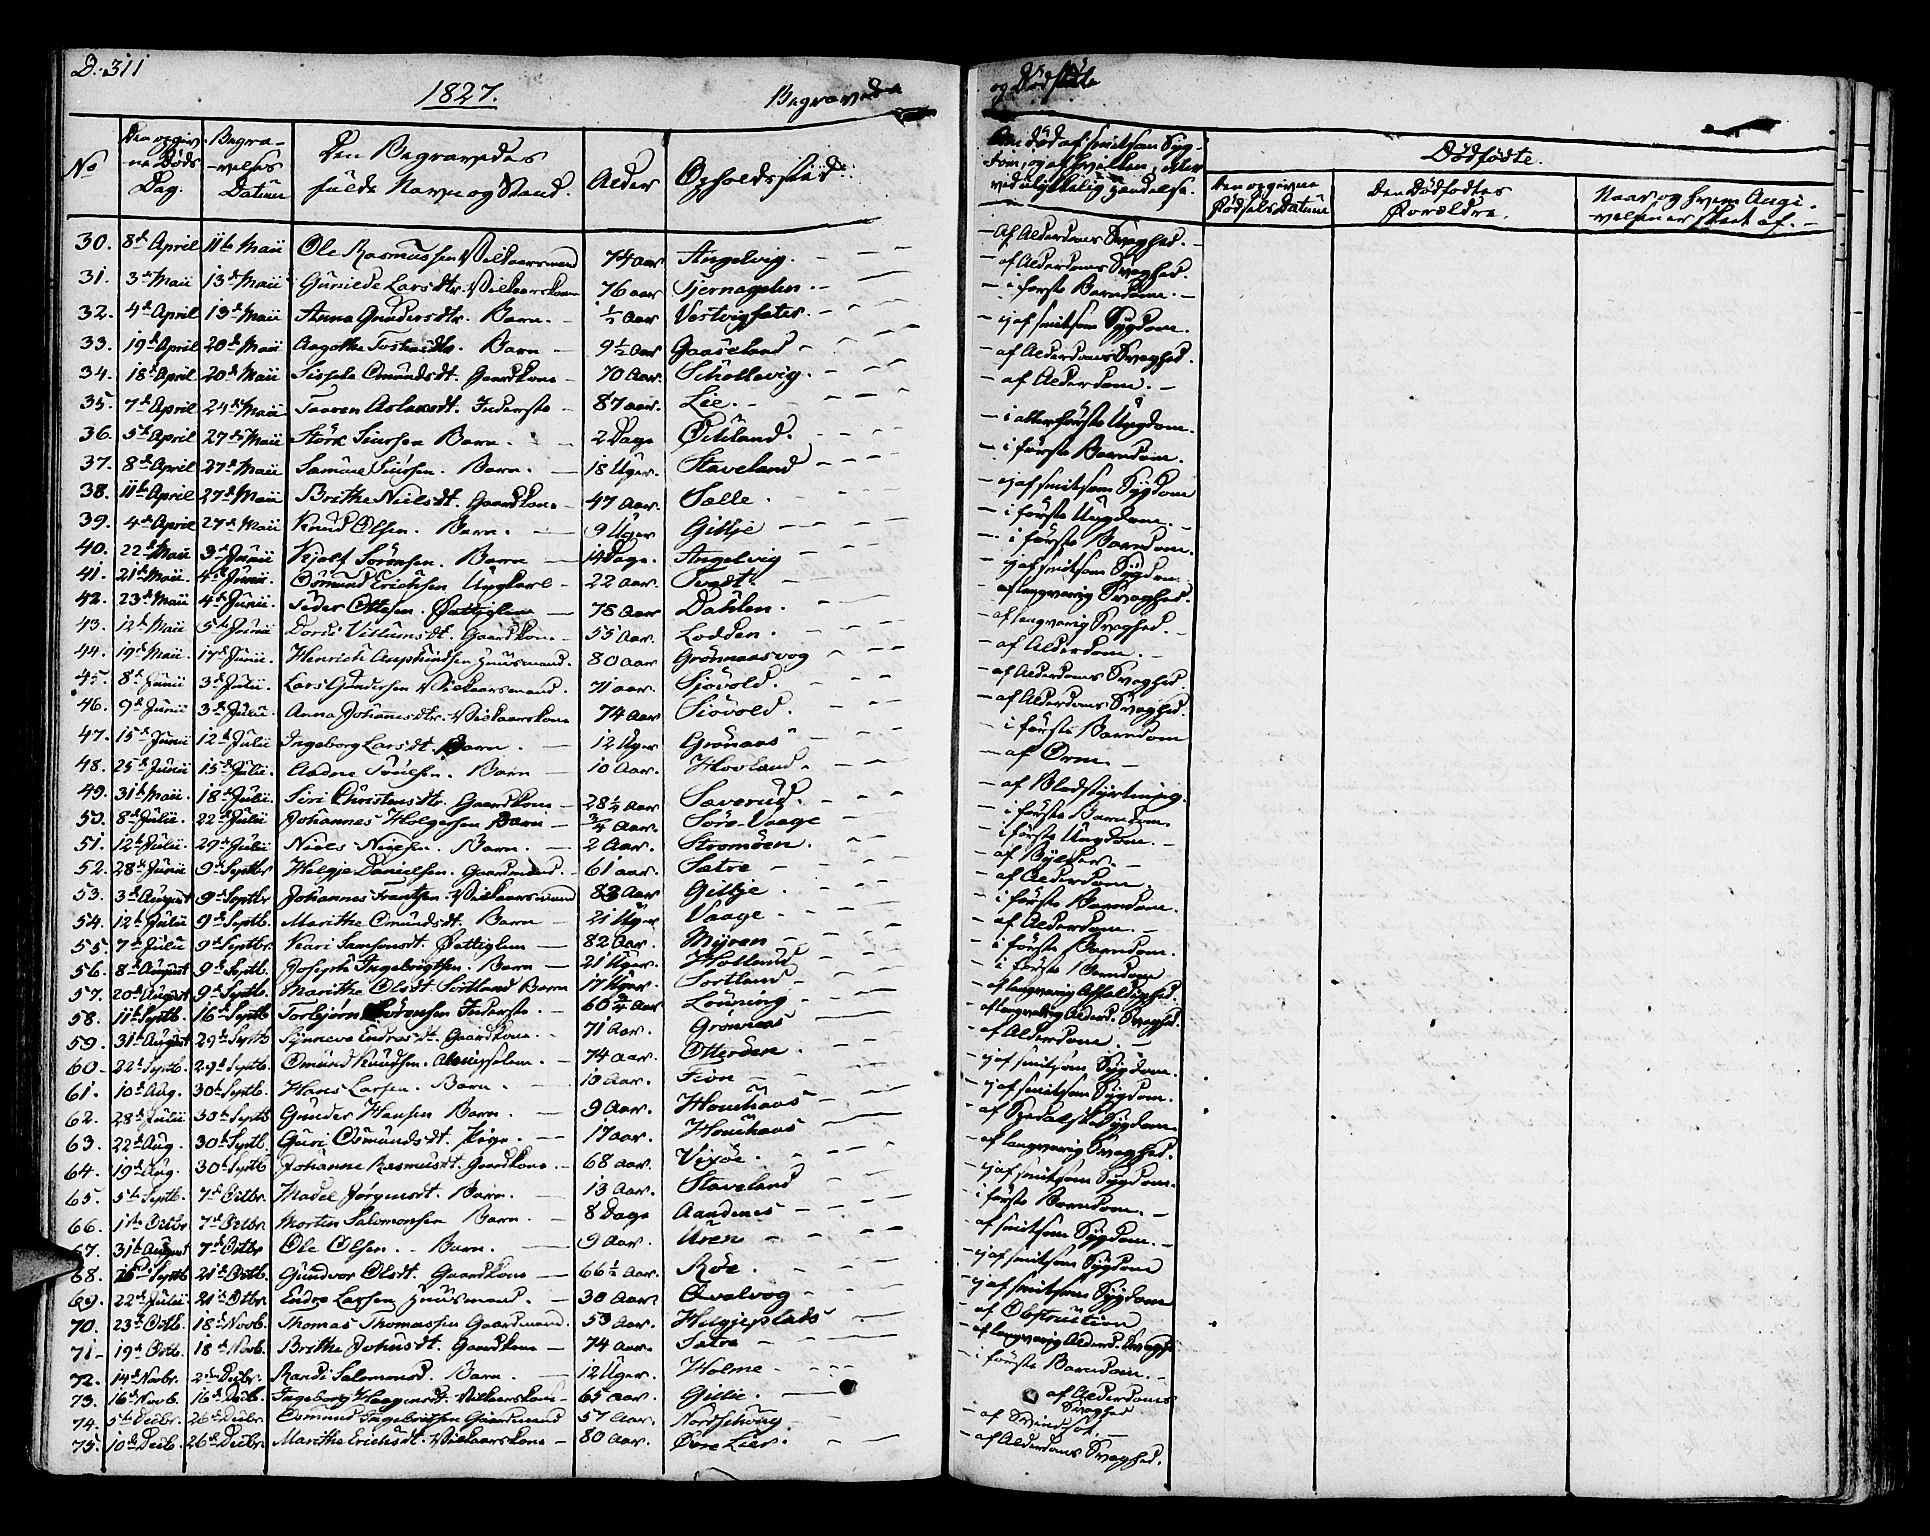 D: 311
1827. Begravede
og Dødfødte
No
Den opgivne Døds Dag.
Begravelses Datum
Den Begravedes fulde Navn og Stand.
Alder
Opholdssted.
Om død af smitsom Sygdom, og af hvilken, eller ved ulykkelig Hændelse.
Dødfødte.
Den opgivne Fødsels Datum
Den Dødfødtes Forældre.
Naar og hvem Angivelsen er skeet af.
30. 8de April 11te Maii Ole Rasmussen Vilkaarsmand 74 aar Angelvig. - Af Alderdoms Svaghed.
31. 3de Maii 13de Maii Gunilde Larsdtr. Vilkaarskone 76 aar Tjernagelen. - af Alderdoms Svaghed.
32. 4de April 13de Maii Anna Gundersdtr. Barn. ½ Aar Vestvigsæter. - i første Barndom.
33. 19de April 20de Maii Aagothe Barn 9½ Aar Gaaseland - ej af smitsom Sygdom.
34. 18de April 20de Maii Sissele Omundsdt. Gaardkone 70 Aar. Schollevig. - af Alderdoms Svaghed.
35. 7de April 24de Maii Taaren Aslaxdt. Inderste 87 aar. Lie. - af Alderdom.
36. 5te April 27de Maii Størk Siursen Barn. 2 Dage Økland. - i allerførste Ungdom.
37. 8de April 27de Maii Samuel Siursen. Barn. 18 Uger. Staveland - i første Barndom.
38. 11te April 27de Maii Brithe Nielsdt. Gaardkone 47 Aar. Sælle. - ej af smitsom Sygdom
39. 4de April 27de Maii Knud Olsen. Barn. 9 Uger Gitlje - i første Ungdom.
40. 22de Maii 3de Junii Kjolf Sørensen. Barn 14 Dage. Angelvig - i første Barndom.
41. 21de Maii 4de Junii. Osmund Erichsen Ungkarl 22 aar. Tvedt. - ej af smitsom Sygdom
42. 23de Maii 4de Junii. Peder Ottesen. Fattiglem 78 aar Dahlen. - af langvarig Svaghed.
43. 12te Maii 5te Junii Dordi Villumsdt. Gaardkone 55 Aar. Lodden. - af langvarig Svaghed.
44. 19de Maii. 17de Junii. Henrich Huusmand. 80 aar Grønnaasvog - af Alderdom.
45. 8de Junii 3de Julii. Lars Gundersen Vilkaarsmand. 71 aar. Siøvold. - af Alderdoms Svaghed
46. 9de Junii 3de Julii Anna Johannesdtr. Vilkaarskone 74 Aar Siøvold. - af Alderdoms Svaghed.
47. 15de Junii 12te Julii Ingeborg Larsdt. Barn. 12 Uger Grønaas - i første Barndom
48. 25de Junii 15de Julii. Aadne Tørresen. Barn 10 Aar. Hovland. - af Orm.
49. 31te Maii. 18de Julii. Siri Christensdtr. Gaardkone 28¼ Aar Sæverud. - af Blodstyrtning.
50. 8de Julii. 22de Julii Johannes Holgersen Barn ¾ Aar. Søre-Vaage - i første Barndom.
51. 12te Julii 29de Julii Niels Nielsen. Barn. 2 Aar Stromøen. - i første Ungdom.
52. 28de Junii 9de Septbr Helgje Danielsen. Gaardmand. 61 aar Sætre - af Bylder.
53. 3de August 9de Septbr. Johannes Frantsen Vilkaarsmand 83 Aar Gitlje. - af Alderdom.
54. 12te Julii 9de Septb. Marithe Omundsdt. Barn 21 Uger Vaage. - i første Barndom.
55 7de Julii 9de Septbr. Kari Samsonsdt. Fattiglem 82 Aar. Myren - af Alderdom.
56. 8de August 9de Septb. Joseph Ingebrigtsen. Barn 21 Uger. Hollund - i første Barndom.
57. 20de August 9de Septb. Marithe Olsdt. Sortland Barn 17 Uger. Sortland - i første Barndom
58. 11te Septb. 16de Septb Torbjørn Sørensen Inderste. 60¾ Aar Løvning - af langvarig Affældighed.
59. 31te August 29de Septb Synneve Endresdt. Gaardkone. 71 Aar. Grønnaas - af langvarig Alderd. Svaghed.
60. 22de Septb. 29de Septb. Omund Knudsen. Almisselem. 74 aar. Otterøen. - af Alderdom.
61. 10de Aug. 30te Septb. Hans Larsen. Barn. 10 Aar. Fion - ej af smitsom Sygdom.
62. 28de Julii 30te Septb Gunder Hansen Barn. 9 Aar. Houkaas - ej af smitsom Sygdom.
63. 22de Aug. 30te Septb. Guri Osmundsdt. Pige. 17 aar. Houkaas - af Spedalsk Sygdom.
64. 19de Aug. 30te Septb Johanne Rasmusdt. Gaardkone. 68 aar. Vixøe. - af langvarig Svaghed.
65. 5te Septb. 7de Octbr. Madel Jørgensdt. Barn. 13 Aar. Staveland - ej af smitsom Sygdom.
66. 1te Octbr 7de Octbr. Morten Salomonsen Barn. 8 Dage Aandnes - i første Barndom.
67. 31te August 7de Octbr Ole Olsen. Barn. 9 Aar. Uren - af smitsom Sygdom.
68. Septb 21de Octb. Gundvor Olsdt. Gaardkone 66½ Aar. Røe. - ej af smitsom Sygdom
69. 22de Julii 21de Octbr. Endre Larsen Huusmand. 30 Aar Qvalvog - ej af smitsom Sygdom
70. 23de Octb. 18de Novb. Thomas Thomassen Gaardmand. 53 Aar. Helgjeplads - af Obstruction
71. 19de Octb. 18de Novb. Brithe Gaardkone 74 Aar. Sætre - af langvarig Alderd. Svagh.
72. 14de Novbr. 2den Decbr. Randi Salomonsd. Barn. 12 Uger. Holme - i første Barndom.
73. 16de Novb. 16de Decb. Ingeborg Haagensdt. Vilkaarskone 65 aar. Gillie. - af Alderdoms Svaghed
74. 5te Decbr. 26de Decbr. Osmund Ingebritsen Gaardmand 57 Aar. - af Svindsot.
75. 10de Decb. 26de Decbr. Marithe Erichsdt. Vilkaarskone 80 aar. Øvre Lier. - af Alderdoms Svaghed.